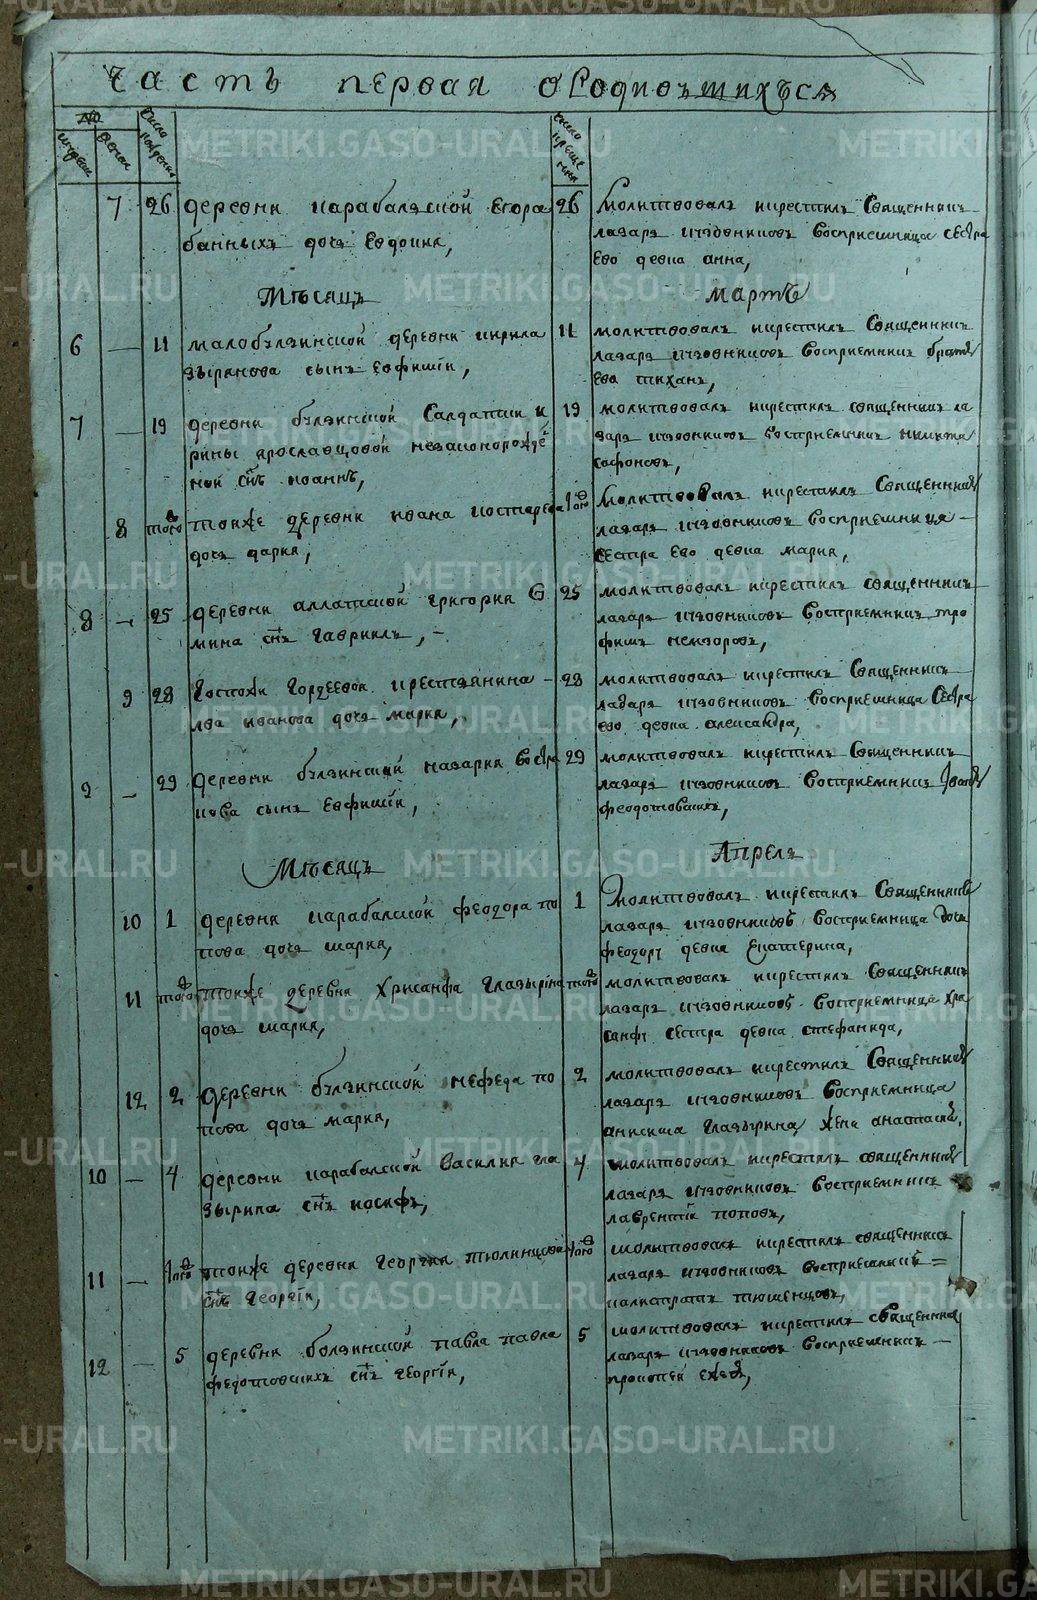 Часть первая о Родивъшихъся
№
мужеска
женска
число рожденія
число креще нія
7 26 деревни карабалской Егора
банныхъ дочь Евдокия,
26 Молитвовалъ икрестилъ Священникъ
лазарь
восприемница сестра
Ево девка анна,
Мѣсяцъ
мартъ
6 — 11 малобулзинской деревни кирила
зырянова сынъ евфимiй,
11 молитвовалъ икрестилъ Священникъ
лазарь
восприемникъ братъ
Ево тиханъ,
7 — 19 деревни булзинской Салдатки и
рины ярославцовой незаконорожде
ной снъ иоаннъ,
19 молитвовалъ икрестилъ священникъ ла
зарь
восприемникъ никита
сафоновъ,
8 того тойже деревни ивана костарева
дочь дарья,
того Молитвовалъ икрестилъ Священникъ
лазарь
восприемница
сестра Ево девка мария,
8 — 25 деревни аллатской григорья
мина снъ гаврилъ,
25 молитвовалъ икрестилъ священникъ
лазарь
восприемникъ тро
фимъ
9 28 Госпожи Гордеевой крестьянина
лва иванова дочь мария,
28 молитвовалъ икрестилъ Священникъ
лазарь
восприемница Сестра
ево девка александра,
9 — 29 деревни булзинской назария востря
кова сынъ Евфимiй,
29 молитвовалъ икрестилъ Священникъ
лазарь
восприемникъ Iванъ
феодотовыхъ,
Мѣсяцъ
Апрель
10 1 деревни карабалской феодора по
пова дочь мария,
1 Молитвовалъ икрестилъ Священникъ
лазарь
восприемница дочь
феодору девка Екатерина,
11 того тойже деревни Хрисанфа Глазырина
дочь мария,
того молитвовалъ икрестилъ Священникъ
лазарь
восприемница хри
санфу сестра девка стефанида,
12 2 Деревни булзинской нефеда по
пова дочь мария,
2 молитвовалъ икрестилъ Священникъ
лазарь
Восприемница
анисима глазырина, жена анастасия,
10 — 4 деревни карабалской василия гла
зырина снъ иосифъ,
4 молитвовалъ икрестилъ священникъ
лазарь
восприемникъ
лаврентiй поповъ,
11 — того тойже деревни Георгия
снъ Георгiй,
того молитвовалъ икрестилъ священникъ
лазарь
восприемникъ =
12 — 5 деревни болзинской павла павла
федотовыхъ снъ георгiй,
5 молитвовалъ икрестилъ священникъ
лазарь
восприемникъ —
прокопей
METRIKI.GASO-URAL.RU